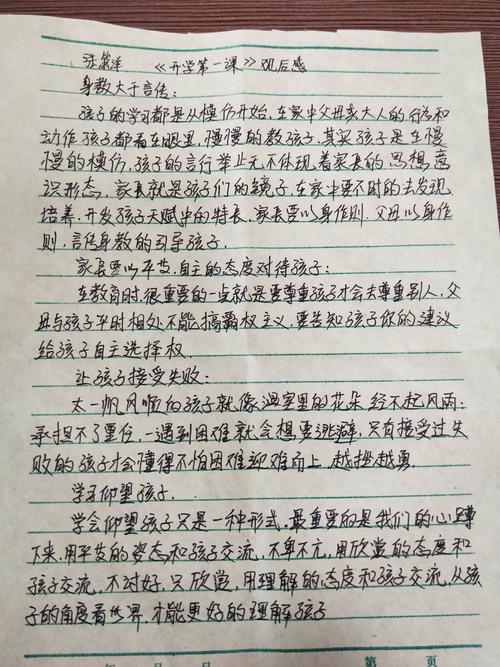 《开学第一课》观后感
身教大于言传:
孩子的学习都是从模仿开始,在家中父母亲大人的行为和
动作,孩子都看在眼里,慢慢的教孩子,其实孩子是在慢
慢的模仿,孩子的言行举止无不体现着家长的思想,意
识形态,家长就是孩子们的镜子,在家中要不时的去发现
培养,开发孩子天赋中的特长,家长要以身作则,父母以身作
则,言传身教的引导孩子.
家长要以平等.自主的态度对待孩子:
在教育时,很重要的一点就是要尊重孩子才会去尊重别人,父
母与孩子平时相处不能搞霸权主义,要告知孩子你的建议
给孩子自主选择权.
让孩子接受失败:
太一帆风顺的孩子就像温室里的花朵经不起风雨:
承担不了重任,一遇到困难就会想要逃避,只有接受过失
败的孩子才会懂得不怕困难迎难而上,越挫越勇.
学习仰望孩子.
学会仰望孩子只是一种形式,最重要的是我们的心蹲
下来,用平等的姿态和孩子交流,不卑不亢,用欣赏的态度和
孩子交流,不讨好,只欣赏,用理解的态度和孩子交流,从孩
子的角度看世界,才能更好的理解孩子
年 月 日 第 页